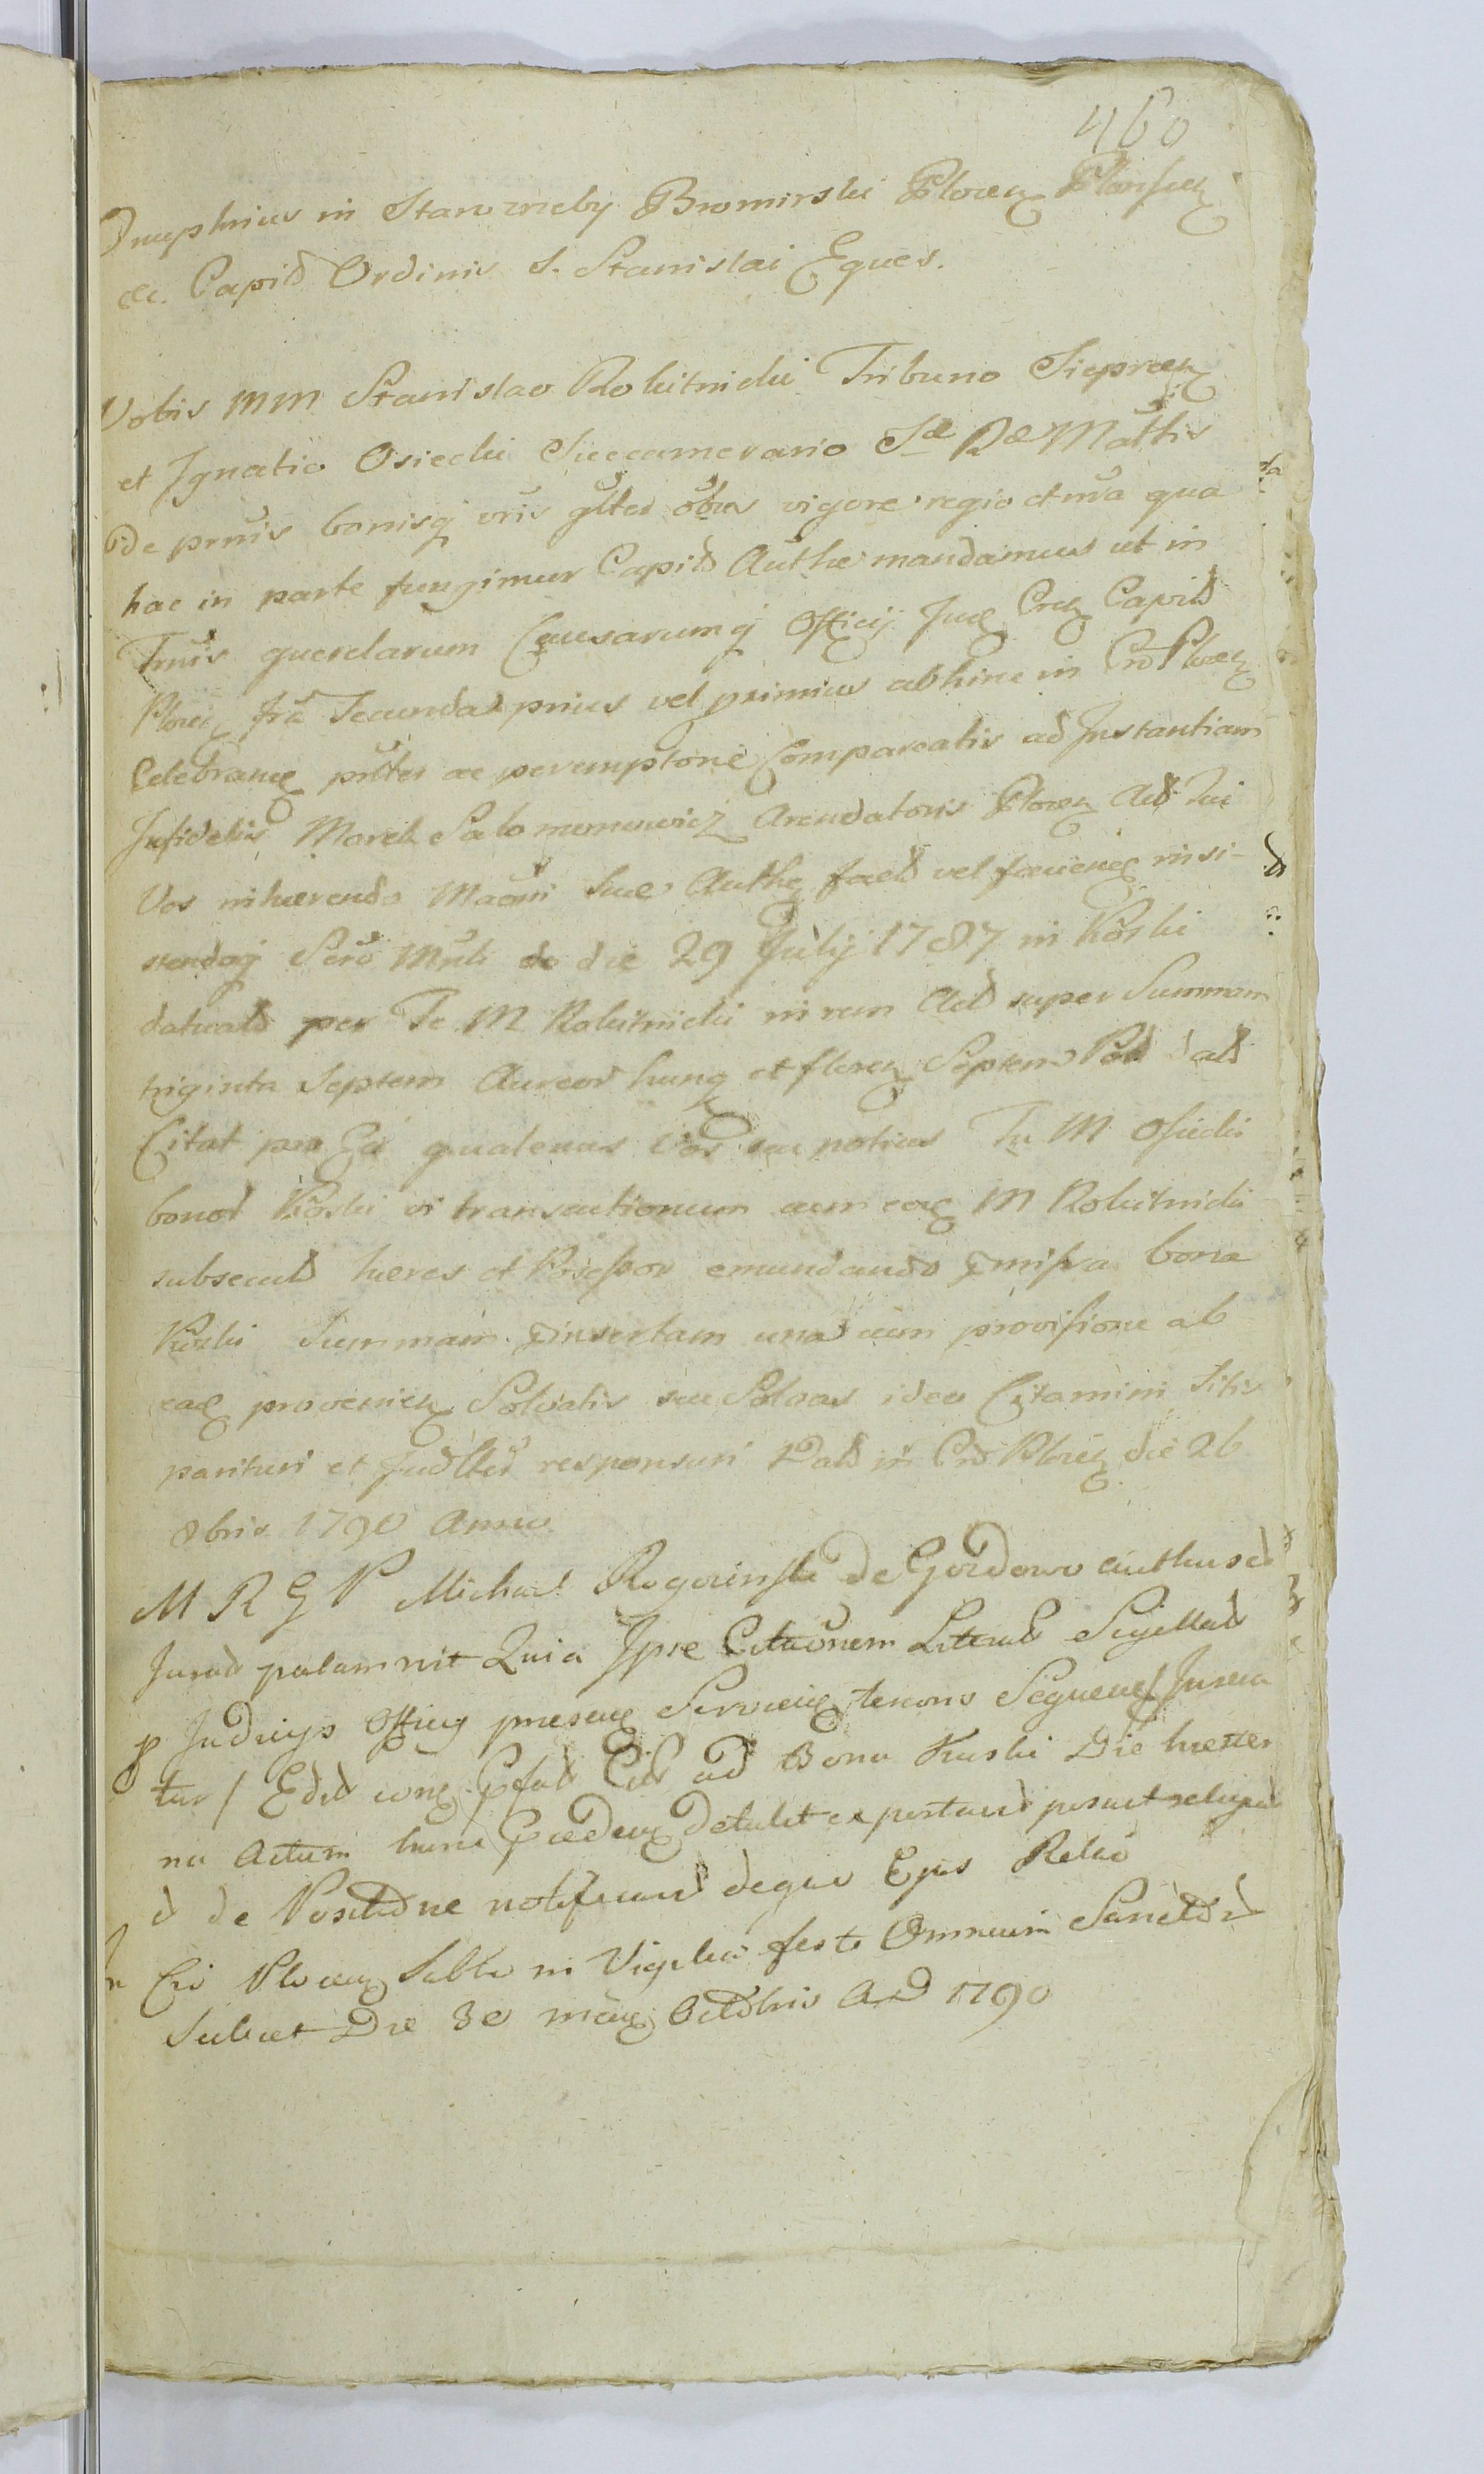 460
Onuphrius in Starozreby Bromirski Plocen Plonscen
etc. Capit Ordinis S. Stanislai Eques.
Vobis MM Stanislao Rokitnicki Tribuno Sieprcen
et Ignatio Osiecki Succamerario Sæ Ræ Mattis
De prnis bonisq vris glter obus vigore regio et nra qua
hac in parte fungimur Capit Authe mandamus ut in
Trnis querelarum Causarumq Officij Jud Cren Capit
Plocen fra Secunda prius vel primius abhinc in Cro Plocen
Celebrand prlter ac peremptorie Compareatis ad Instantiam
Infidelis Morek Salomonowicz Arendatoris Plocen Act Qui
Vos inhærendo Maoni suæ Authe fact vel faciend insi-
stendoq Scro Mnli de die 29 Julij 1787 in Koski
datato per Te M Rokitnicki in rem Act super Summam
triginta Septem Aureor hung et floren Septem Pol dat
Citat pro Eo quatenus Vos seu potius Tu M Osiecki
bonor Koski vi transactionum cum eod M Rokitnicki
subsecut hæres et Possessor emundando pmissa bona
Koski Summam pinsertam una cum provisione ab
ead provenien Solvatis seu Solvas ideo Citamini Sitis
parituri et Judlter responsuri Dat in Cro Plocen die 26
8bris 1790 Anno.
M R G P Michael Rogozinski de Gordowo authus et
Jurat palam rnit Quia Ipse Citaonem Literal Sigillat
p Judicijs Officij præsen Serviend tenoris Sequen / Insera
tur / Edit con pfat Cit ad Bona Kuski Die hester
na Actum hunc præceden detulit ex portavit posuit reliquit
et de Positione notificavit de quo Ejus Relio
In Cro Plocen Sabbo in Vigilia festi Omnium Sanctor
Scilicet Die 30 men Octobris A D 1790